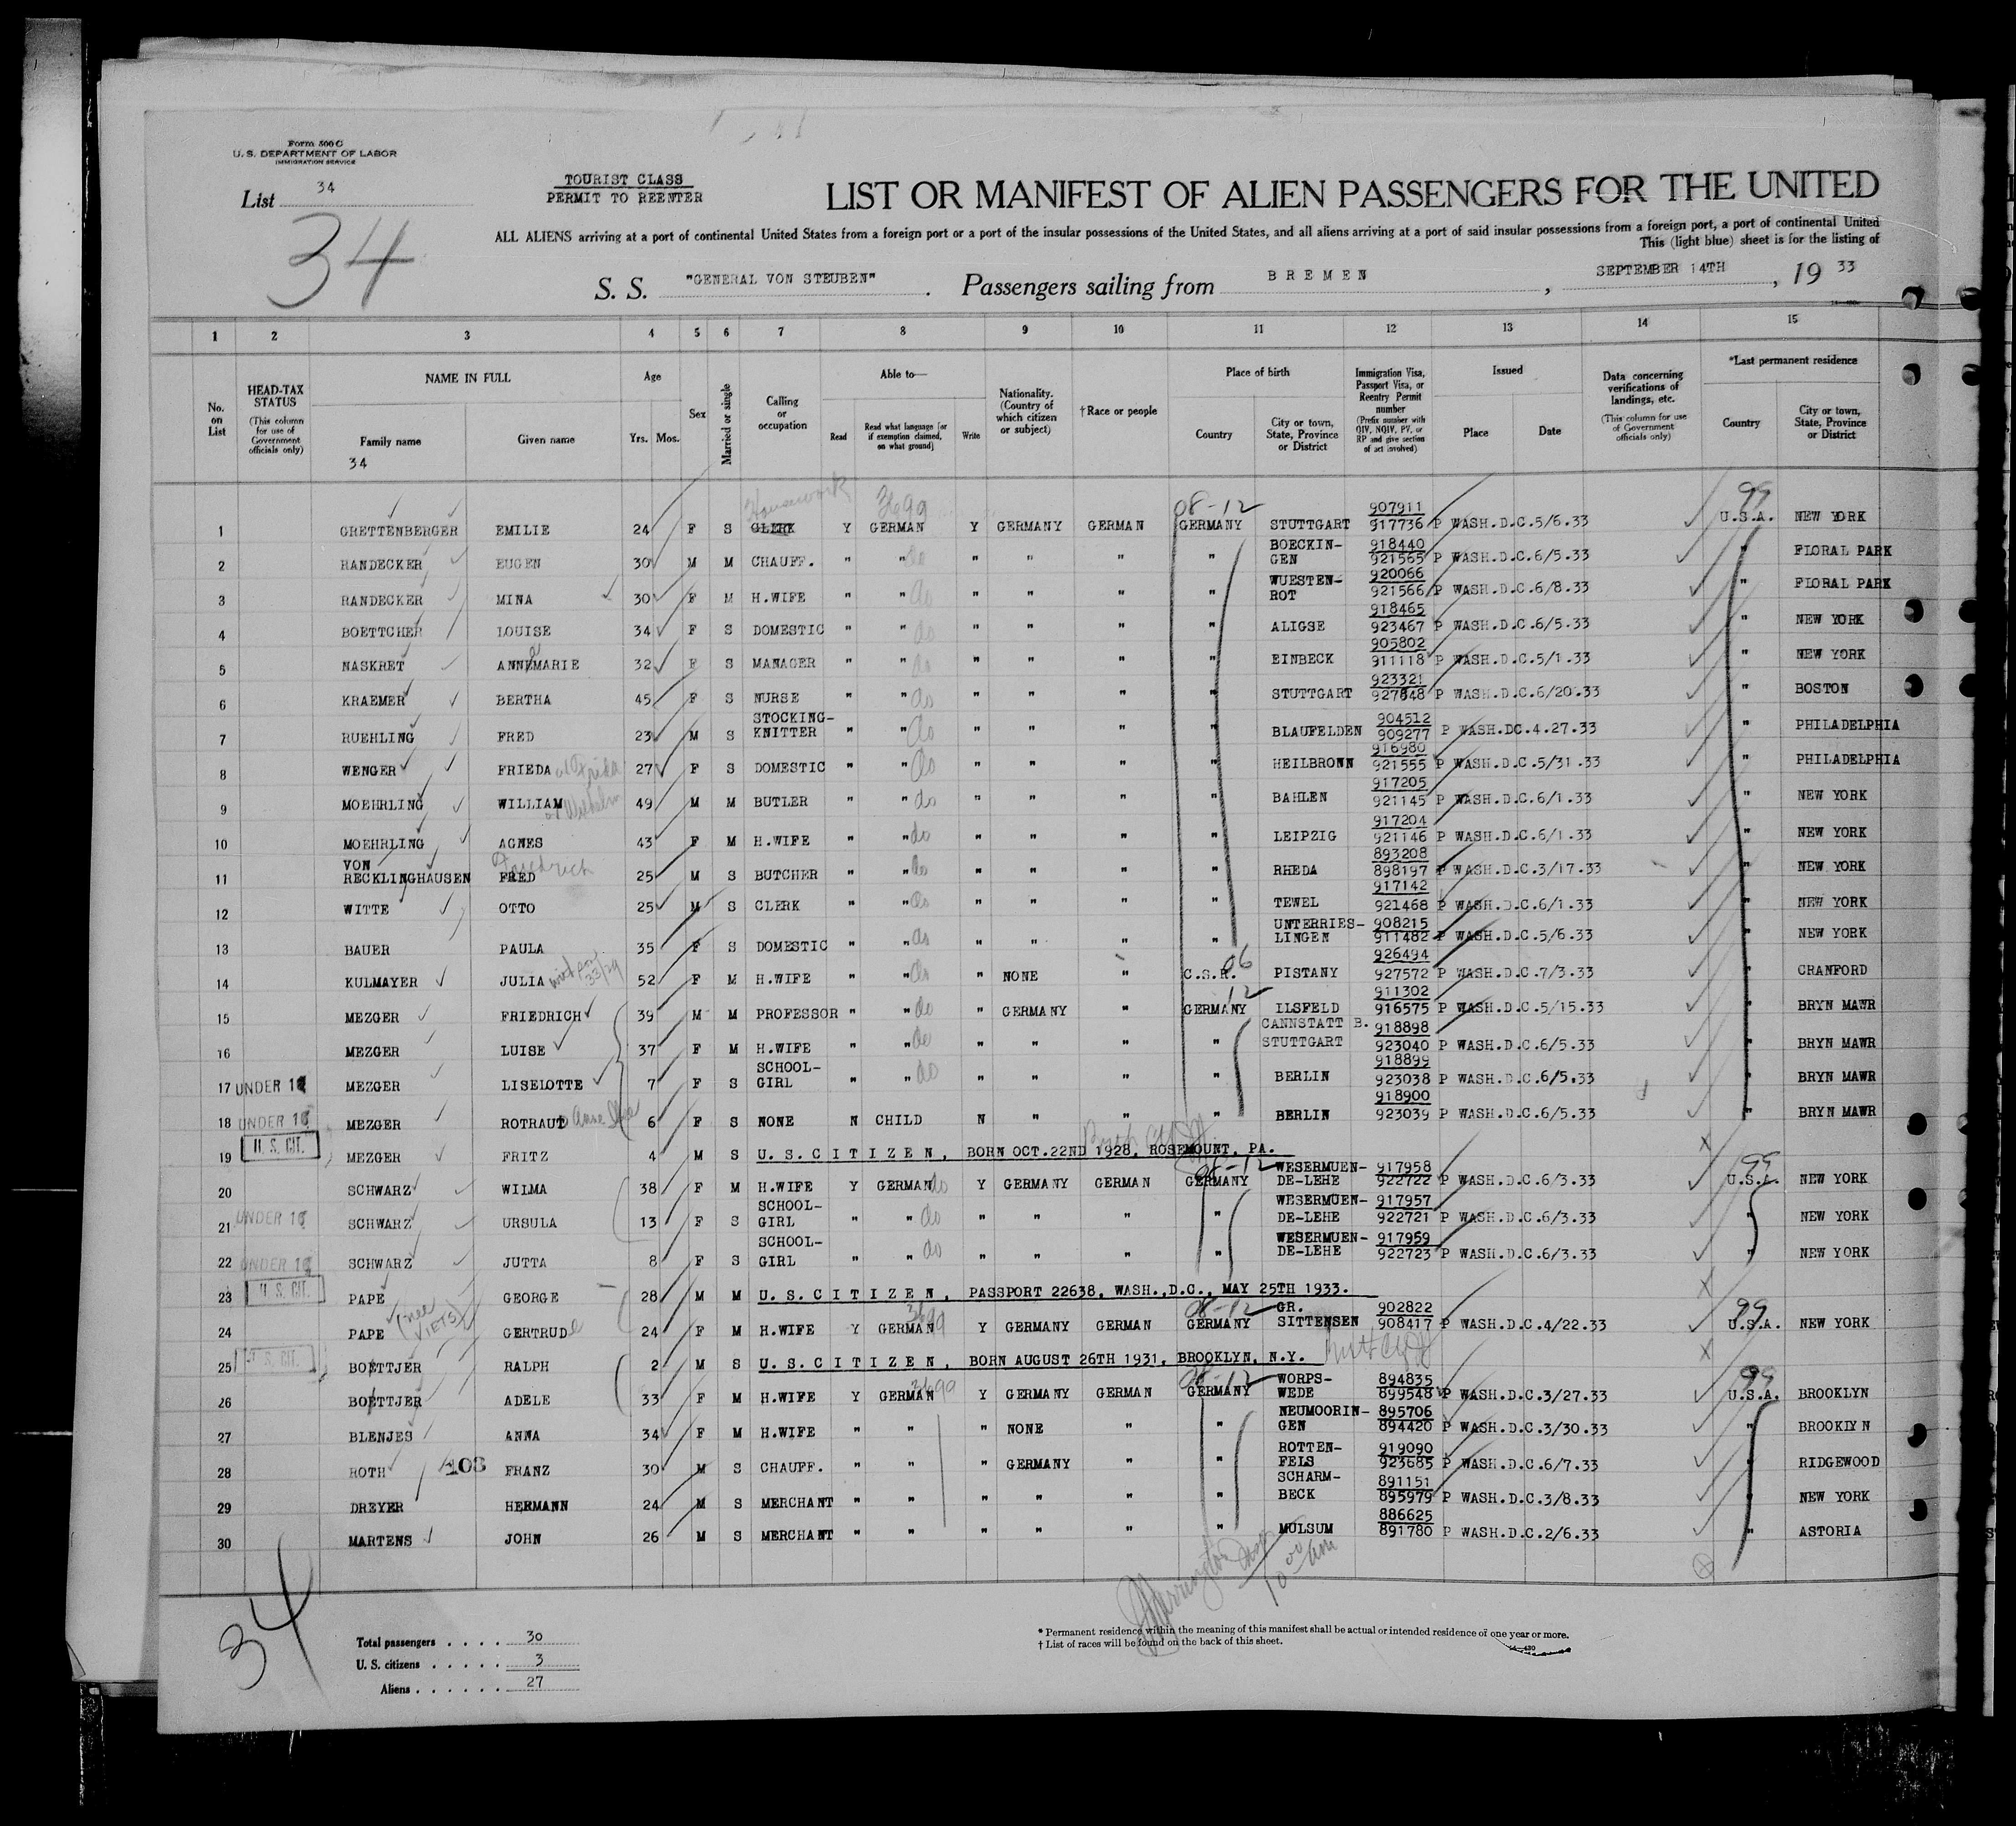 Form 500 C
U. S. DEPARTMENT OF LABOR
IMMIGRATION SERVICE
List 34
34
TOURIST CLASS
PERMIT TO REENTER
LIST OR MANIFEST OF ALIEN PASSENGERS FOR THE UNITED
ALL ALIENS arriving at a port of continental United States from a foreign port or a port of the insular possessions of the United States, and all aliens arriving at a port of said insular possessions from a foreign port, a port of continental United
This (light blue) sheet is for the listing of
S. S. "GENERAL VON STEUBEN" . Passengers sailing from BREMEN , SEPTEMBER 14TH , 19 33
1 2 3 4 5 6 7 8 9 10 11 12 13 14 15
No. on List
HEAD-TAX STATUS (This column for use of Government officials only)
NAME IN FULL
Family name
Given name
34
Age
Yrs. Mos.
Sex
Married or single
Calling or occupation
Able to—
Read
Read what language [or if exemption claimed, on what ground]
Write
Nationality. (Country of which citizen or subject)
†Race or people
Place of birth
Country
City or town, State, Province or District
Immigration Visa, Passport Visa, or Reentry Permit number
(Prefix number with QIV, NQIV, PV, or RP and give section of act involved)
Issued
Place
Date
Data concerning verifications of landings, etc.
(This column for use of Government officials only)
*Last permanent residence
Country
City or town, State, Province or District
Housework 3699 08-12 907911 99
1 GRETTENBERGER EMILIE 24 F S CLERK Y GERMAN Y GERMANY GERMAN GERMANY STUTTGART 917736 P WASH.D.C.5/6.33 U.S.A. NEW YORK
2 RANDECKER EUGEN 30 M M CHAUFF. " " do " " " " BOECKIN-GEN 918440 921565 P WASH.D.C.6/5.33 " FLORAL PARK
3 RANDECKER MINA 30 F M H.WIFE " " do " " " " WUESTEN-ROT 920066 921566 P WASH.D.C.6/8.33 " FLORAL PARK
4 BOETTCHER LOUISE 34 F S DOMESTIC " " do " " " " ALIGSE 918465 923467 P WASH.D.C.6/5.33 " NEW YORK
5 NASKRET ANNEMARIE 32 F S MANAGER " " do " " " " EINBECK 905802 911118 P WASH.D.C.5/1.33 " NEW YORK
6 KRAEMER BERTHA 45 F S NURSE " " do " " " " STUTTGART 923321 927848 P WASH.D.C.6/20.33 " BOSTON
7 RUEHLING FRED 23 M S STOCKING-KNITTER " " do " " " " BLAUFELDEN 904512 909277 P WASH.DC.4.27.33 " PHILADELPHIA
8 WENGER FRIEDA or Frida 27 F S DOMESTIC " " do " " " " HEILBRONN 916980 921555 P WASH.D.C.5/31.33 " PHILADELPHIA
9 MOEHRLING WILLIAM or Wilhelm 49 M M BUTLER " " do " " " " BAHLEN 917205 921145 P WASH.D.C.6/1.33 " NEW YORK
10 MOEHRLING AGNES 43 F M H.WIFE " " do " " " " LEIPZIG 917204 921146 P WASH.D.C.6/1.33 " NEW YORK
11 VON RECKLINGHAUSEN FRED Friedrich 25 M S BUTCHER " " do " " " " RHEDA 893208 898197 P WASH.D.C.3/17.33 " NEW YORK
12 WITTE OTTO 25 M S CLERK " " do " " " " TEWEL 917142 921468 P WASH.D.C.6/1.33 " NEW YORK
13 BAUER PAULA 35 F S DOMESTIC " " do " " " " UNTERRIES-LINGEN 908215 911482 P WASH.D.C.5/6.33 " NEW YORK
14 KULMAYER JULIA 52 F M H.WIFE " " do " NONE " C.S.R. 06 PISTANY 926494 927572 P WASH.D.C.7/3.33 " CRANFORD
15 MEZGER FRIEDRICH 39 M M PROFESSOR " " do " GERMANY " GERMANY 12 ILSFELD 911302 916575 P WASH.D.C.5/15.33 " BRYN MAWR
16 MEZGER LUISE 37 F M H.WIFE " " do " " " " CANNSTATT B. STUTTGART 918898 923040 P WASH.D.C.6/5.33 " BRYN MAWR
17 UNDER 16 MEZGER LISELOTTE 7 F S SCHOOL-GIRL " " do " " " " BERLIN 918899 923038 P WASH.D.C.6/5.33 " BRYN MAWR
18 UNDER 16 MEZGER ROTRAUT 6 F S NONE N CHILD N " " " BERLIN 918900 923039 P WASH.D.C.6/5.33 " BRYN MAWR
19 U. S. CIT. MEZGER FRITZ 4 M S U. S. C I T I Z E N, BORN OCT.22ND 1928, ROSEMOUNT, PA. X
20 SCHWARZ WILMA 38 F M H.WIFE Y GERMAN do Y GERMANY GERMAN GERMANY 08-12 WESERMUEN-DE-LEHE 917958 922722 P WASH.D.C.6/3.33 99 U.S.A. NEW YORK
21 UNDER 16 SCHWARZ URSULA 13 F S SCHOOL-GIRL " " do " " " " WESERMUEN-DE-LEHE 917957 922721 P WASH.D.C.6/3.33 " NEW YORK
22 UNDER 16 SCHWARZ JUTTA 8 F S SCHOOL-GIRL " " do " " " " WESERMUEN-DE-LEHE 917959 922723 P WASH.D.C.6/3.33 " NEW YORK
23 U. S. CIT. PAPE GEORGE 28 M M U. S. C I T I Z E N, PASSPORT 22638, WASH.,D.C., MAY 25TH 1933. X
24 PAPE (nee VIETS) GERTRUDE 24 F M H.WIFE Y GERMAN 3699 Y GERMANY GERMAN GERMANY 08-12 GR. SITTENSEN 902822 908417 P WASH.D.C.4/22.33 99 U.S.A. NEW YORK
25 U. S. CIT. BOETTJER RALPH 2 M S U. S. C I T I Z E N, BORN AUGUST 26TH 1931, BROOKLYN, N.Y. X
26 BOETTJER ADELE 33 F M H.WIFE Y GERMAN 3699 Y GERMANY GERMAN GERMANY 08-12 WORPS-WEDE 894835 899548 P WASH.D.C.3/27.33 99 U.S.A. BROOKLYN
27 BLENJES ANNA 34 F M H.WIFE " " " NONE " " NEUMOORIN-GEN 895706 894420 P WASH.D.C.3/30.33 " BROOKLYN
28 ROTH 108 FRANZ 30 M S CHAUFF. " " " GERMANY " " ROTTEN-FELS 919090 923685 P WASH.D.C.6/7.33 " RIDGEWOOD
29 DREYER HERMANN 24 M S MERCHANT " " " " " " SCHARM-BECK 891151 895979 P WASH.D.C.3/8.33 " NEW YORK
30 MARTENS JOHN 26 M S MERCHANT " " " " " " MULSUM 886625 891780 P WASH.D.C.2/6.33 " ASTORIA
34
Total passengers . . . . 30
U. S. citizens . . . . . 3
Aliens . . . . . . 27
* Permanent residence within the meaning of this manifest shall be actual or intended residence of one year or more.
† List of races will be found on the back of this sheet.